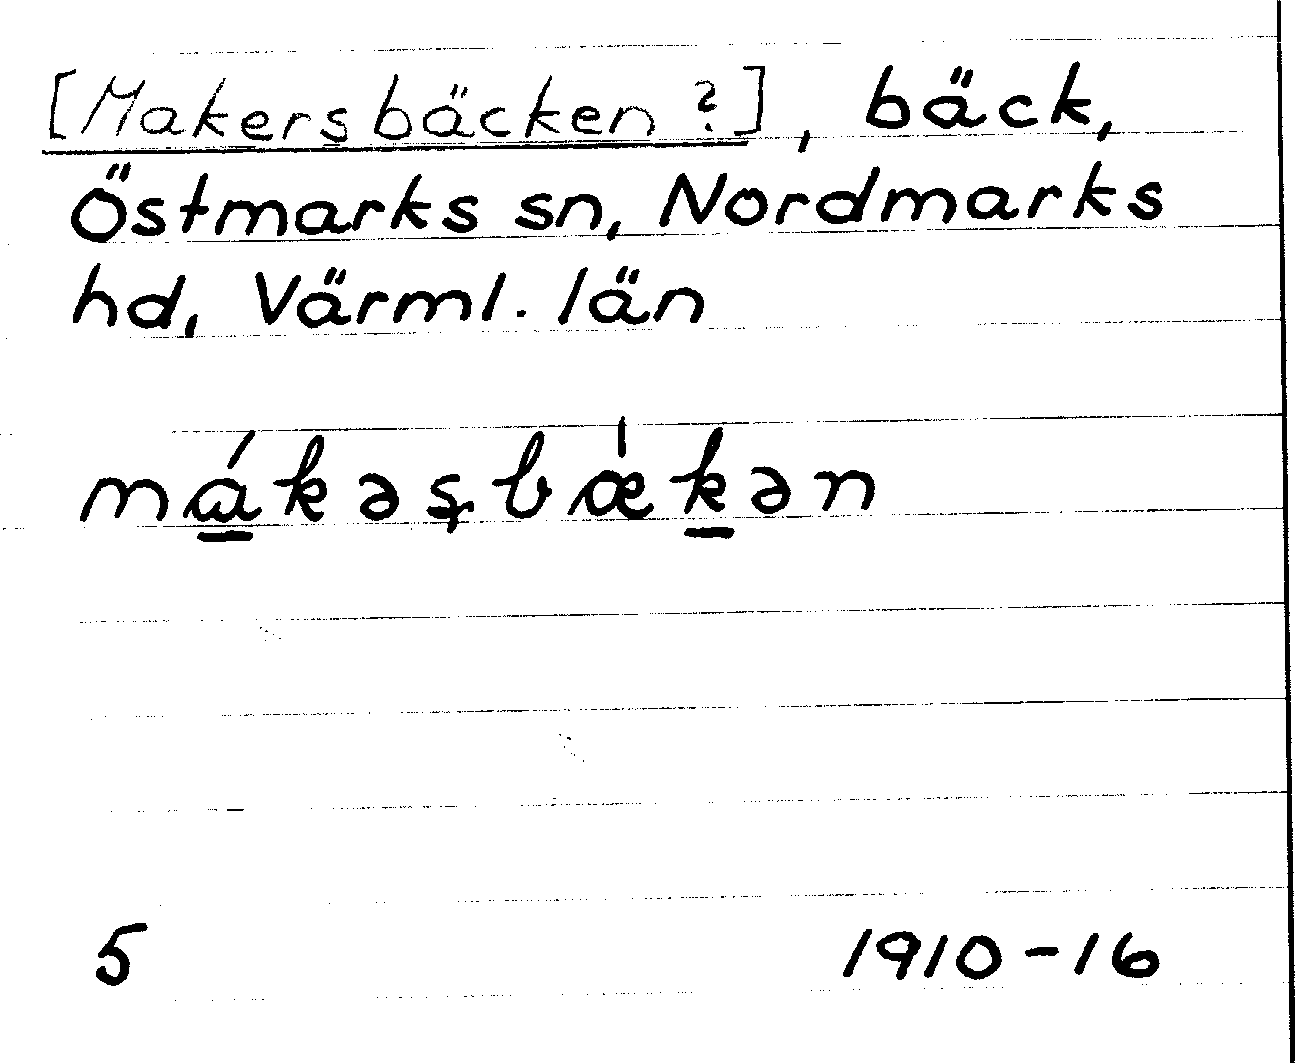 [Makersbäcken ?], bäck,
Östmarks sn, Nordmarks
hd, Värml. län
má̱kəʂbæ̍ḵən
5 1910-16